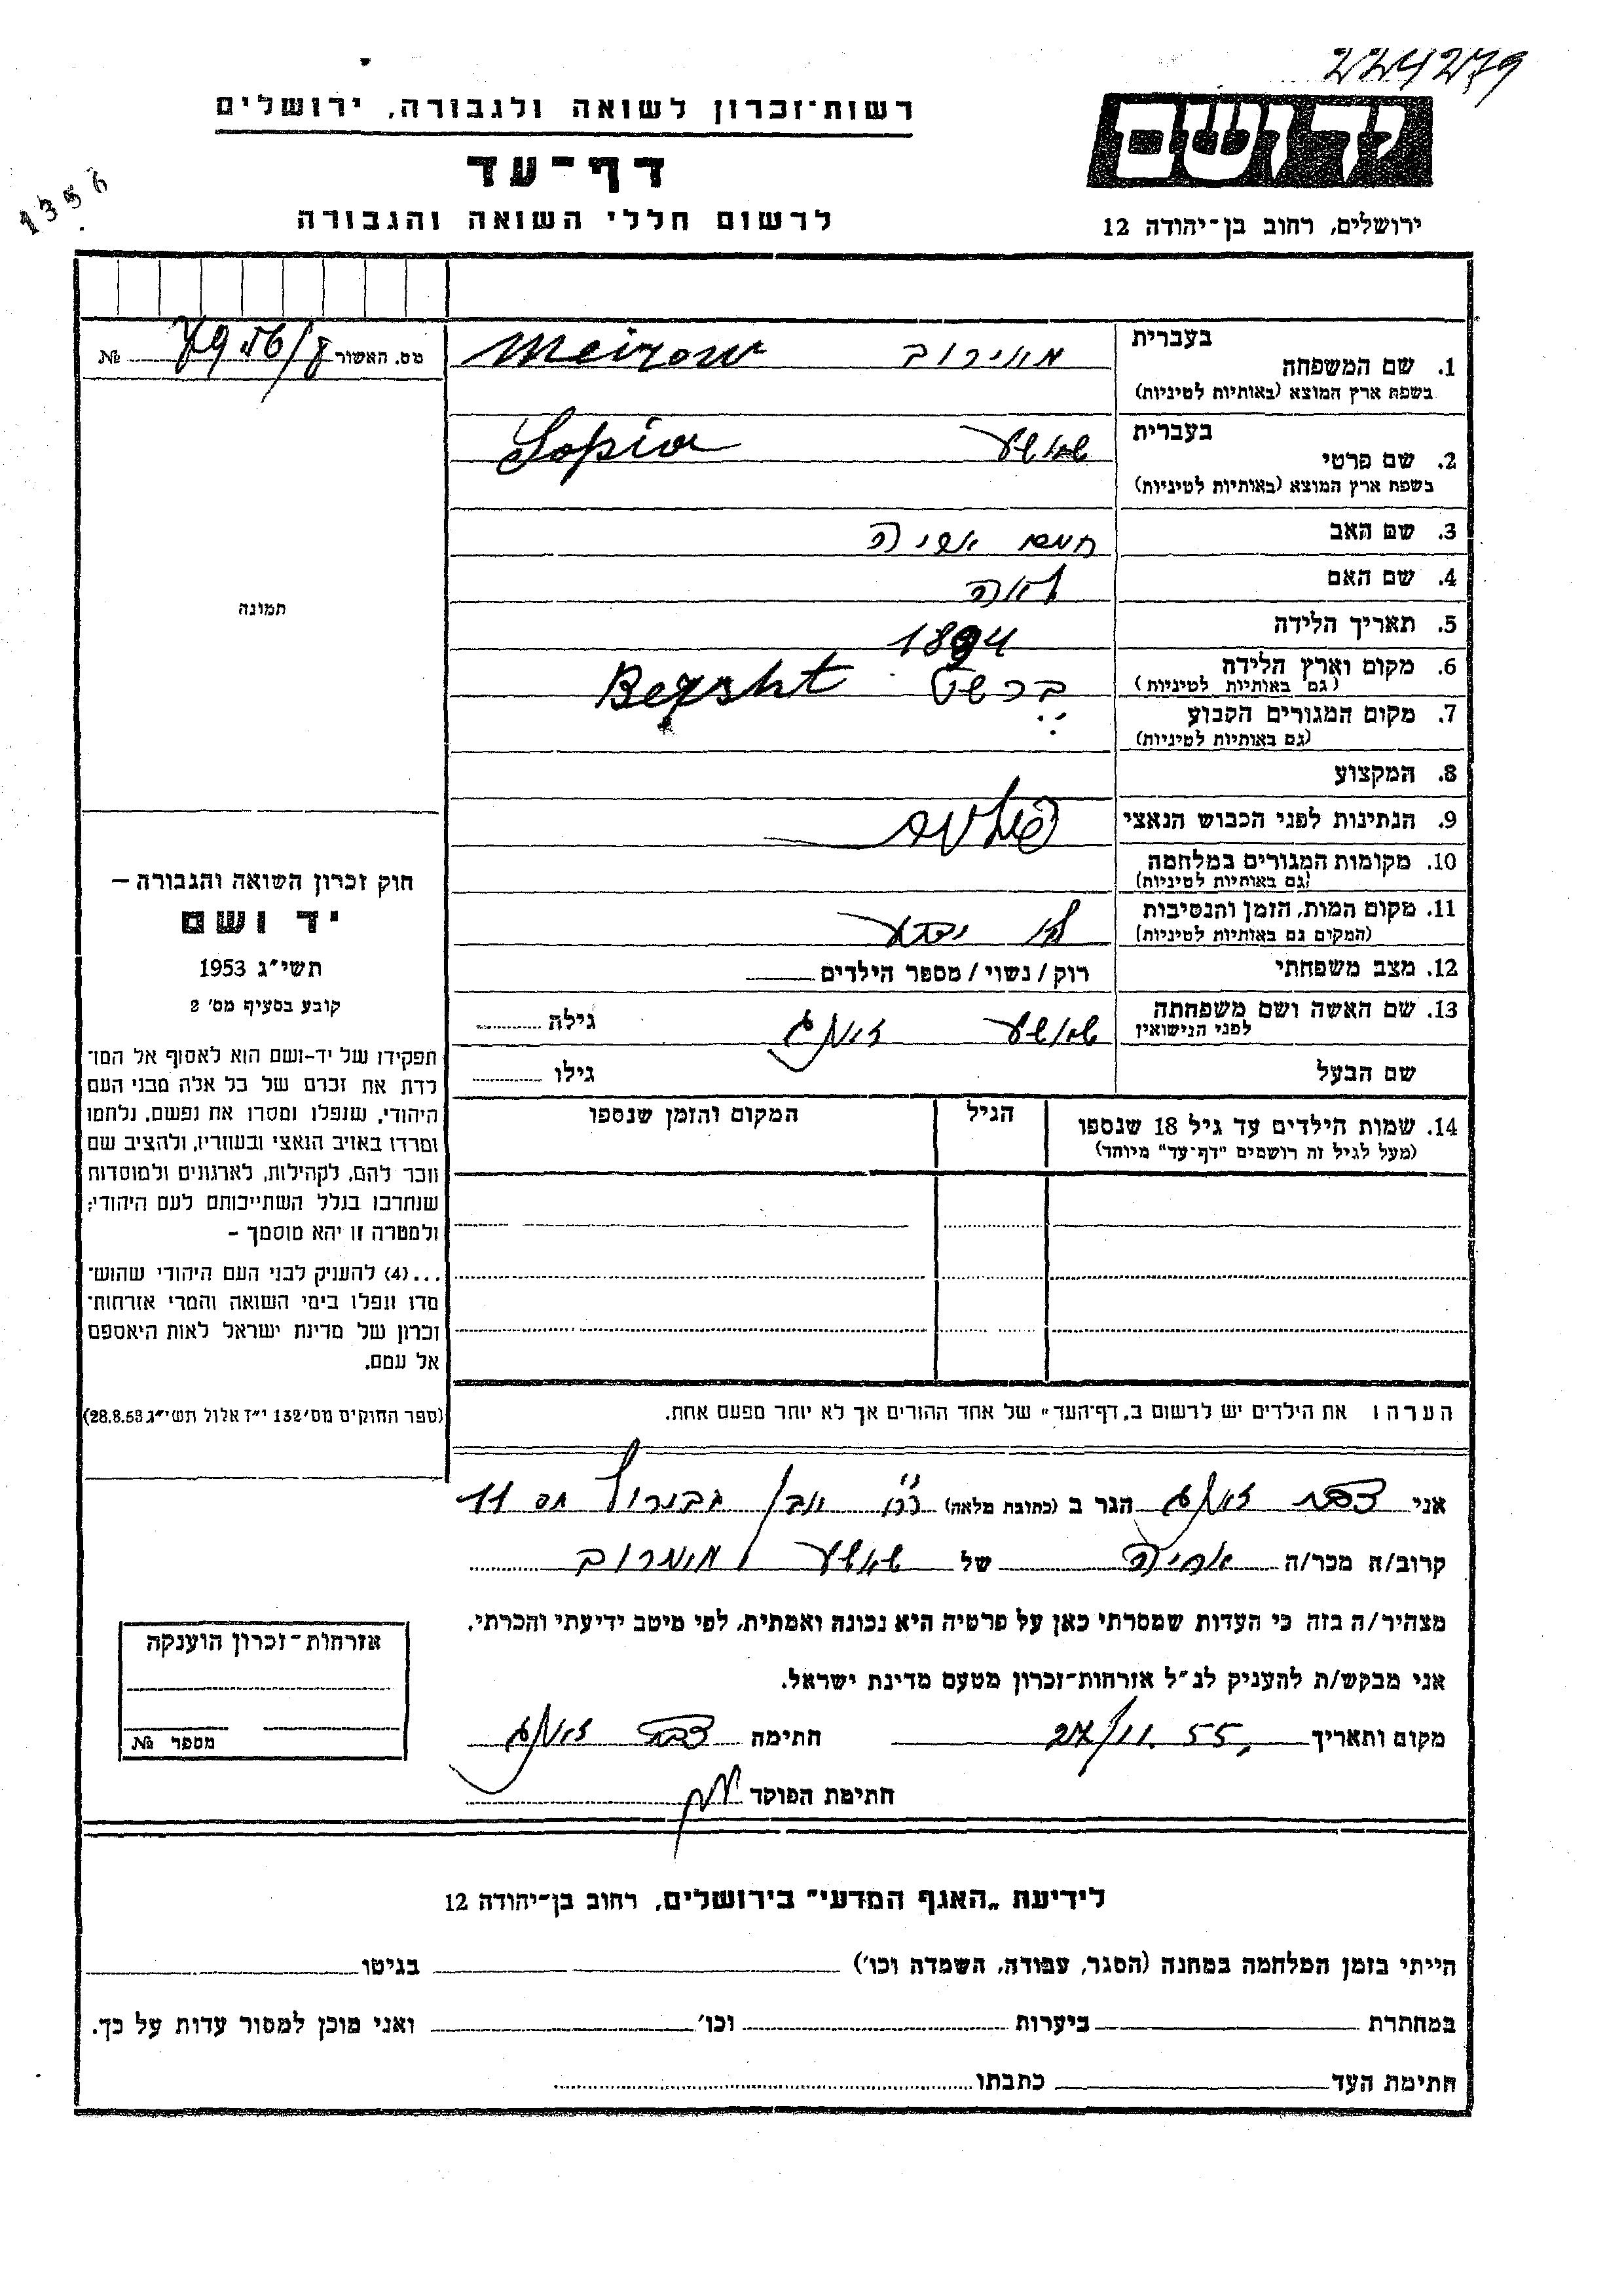 224279
רשות־זכרון לשואה ולגבורה, ירושלים
יד ושם
דף־עד
1356
לרשום חללי השואה והגבורה
ירושלים, רחוב בן־יהודה 12
בעברית
1. שם המשפחה מאירוב Meirow
בשפת ארץ המוצא (באותיות לטיניות)
מס. האשור №
בעברית
2. שם פרטי Sopia
בשפת ארץ המוצא (באותיות לטיניות)
3. שם האב חיים אריה
4. שם האם לאה
תמונה
5. תאריך הלידה 1894
6. מקום וארץ הלידה ברשט Bersht
(גם באותיות לטיניות)
7. מקום המגורים הקבוע
(גם באותיות לטיניות)
8. המקצוע
9. הנתינות לפני הכבוש הנאצי
10. מקומות המגורים במלחמה
(גם באותיות לטיניות)
11. מקום המות, הזמן והנסיבות לא ידוע
(המקום גם באותיות לטיניות)
12. מצב משפחתי רוק / נשוי / מספר הילדים
13. שם האשה ושם משפחתה גילה
לפני הנישואין
שם הבעל גילו
14. שמות הילדים עד גיל 18 שנספו הגיל המקום והזמן שנספו
(מעל לגיל זה רושמים "דף־עד" מיוחד)
חוק זכרון השואה והגבורה –
יד ושם
תשי"ג 1953
קובע בסעיף מס' 2
תפקידו של יד-ושם הוא לאסוף אל המו־
לדת את זכרם של כל אלה מבני העם
היהודי, שנפלו ומסרו את נפשם, נלחמו
ומרדו באויב הנאצי ובעוזריו, ולהציב שם
וזכר להם, לקהילות, לארגונים ולמוסדות
שנחרבו בגלל השתייכותם לעם היהודי;
ולמטרה זו יהא מוסמך –
...(4) להעניק לבני העם היהודי שהוש־
מדו ונפלו בימי השואה והמרי אזרחות־
זכרון של מדינת ישראל לאות היאספם
אל עמם.
(ספר החוקים מס' 132 י"ז אלול תשי"ג 28.8.53)
הערה: את הילדים יש לרשום ב"דף־העד" של אחד ההורים אך לא יותר מפעם אחת.
אני הגר ב (כתובת מלאה) 11
קרוב/ה מכר/ה של מאירוב
מצהיר/ה בזה כי העדות שמסרתי כאן על פרטיה היא נכונה ואמתית, לפי מיטב ידיעתי והכרתי.
אני מבקש/ת להעניק לנ"ל אזרחות־זכרון מטעם מדינת ישראל.
מקום ותאריך 27/11.55 חתימה
חתימת הפוקד
אזרחות־זכרון הוענקה
מספר №
לידיעת „האגף המדעי" בירושלים, רחוב בן־יהודה 12
הייתי בזמן המלחמה במחנה (הסגר, עבודה, השמדה וכו') בגיטו
במחתרת ביערות וכו' ואני מוכן למסור עדות על כך.
חתימת העד כתבתו